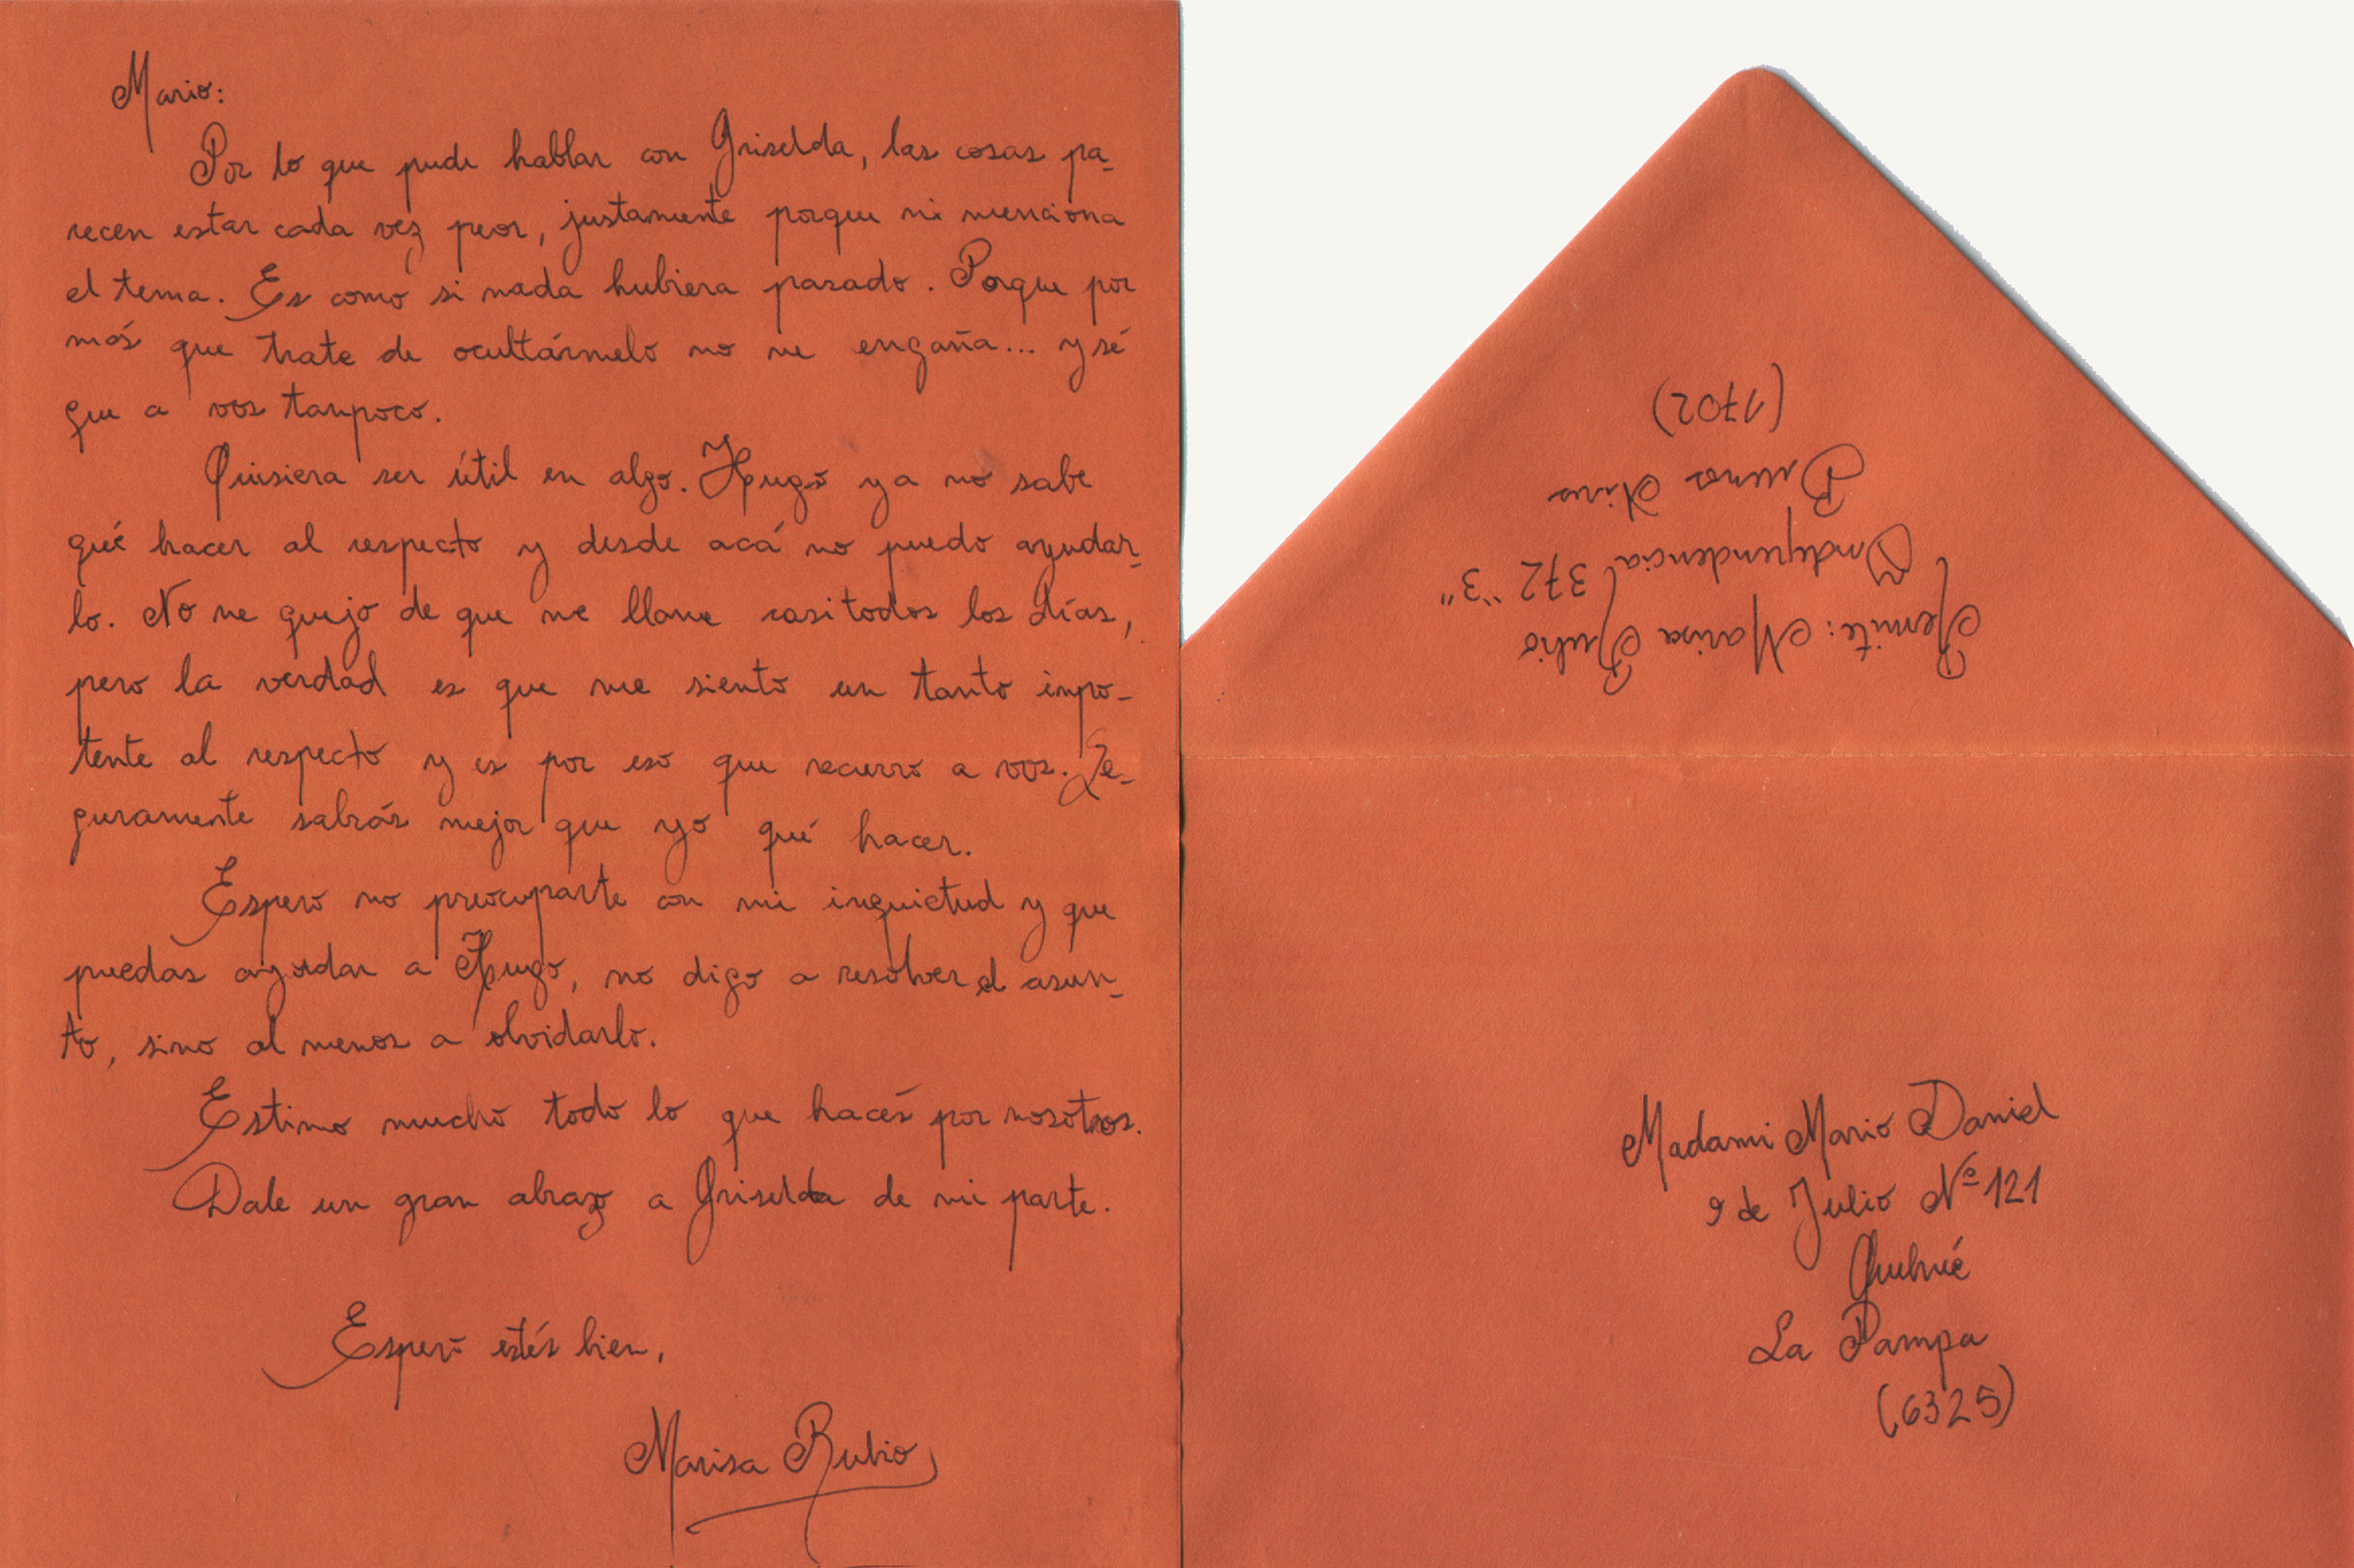 Mario:
Por lo que pude hablar con Griselda, las cosas pa-
recen estar cada vez peor, justamente porque ni menciona
el tema. Es como si nada hubiera pasado. Porque por
más que trate de ocultármelo no me engaña... y sé
que a vos tampoco.
Quisiera ser útil en algo. Hugo ya no sabe
qué hacer al respecto y desde acá no puedo ayudar-
lo. No me quejo de que me llame casi todos los días,
pero la verdad es que me siento un tanto impo-
tente al respecto y es por eso que recurro a vos. Se-
guramente sabrás mejor que yo qué hacer.
Espero no preocuparte con mi inquietud y que
puedas ayudar a Hugo, no digo a resolver el asun-
to, sino al menos a olvidarlo.
Estimo mucho todo lo que hacés por nosotros.
Dale un gran abrazo a Griselda de mi parte.
Espero estés bien,
Marisa Rubio
Remite: Marisa Rubio
Independencia 372 "3"
Buenos Aires
(1702)
Madami Mario Daniel
9 de Julio Nº 121
Quehué
La Pampa
(6325)